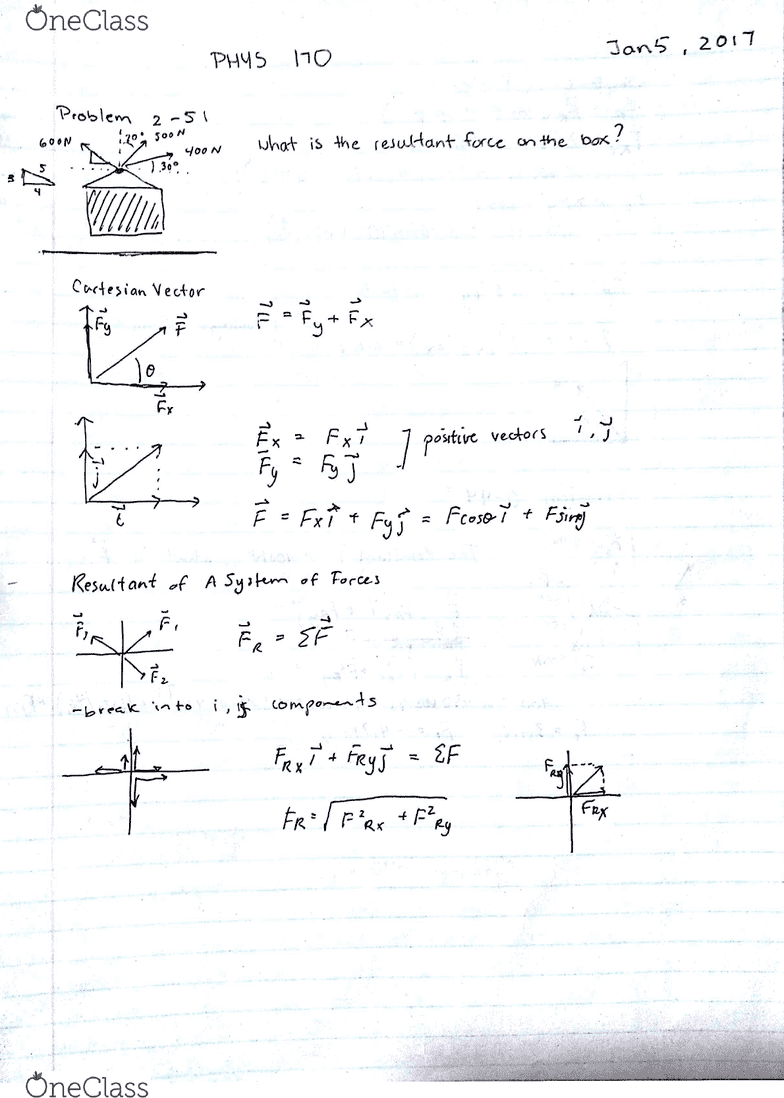 OneClass
PHYS 170
Jan 5, 2017
Problem 2-51
600N
20°
500N
400N
30°
5
3
4
What is the resultant force on the box?
Cartesian Vector
F⃗y
F⃗
θ
F⃗x
F⃗ = F⃗y + F⃗x
j⃗
i⃗
F⃗x = Fx i⃗
F⃗y = Fy j⃗
] positive vectors i⃗, j⃗
F⃗ = Fx i⃗ + Fy j⃗ = Fcosθ i⃗ + Fsinθ j⃗
Resultant of A System of Forces
F⃗₁
F⃗₂
F⃗R = ΣF⃗
-break into i, j components
FRx i⃗ + FRy j⃗ = ΣF
FR = √(F²Rx + F²Ry)
FRy
FRx
OneClass